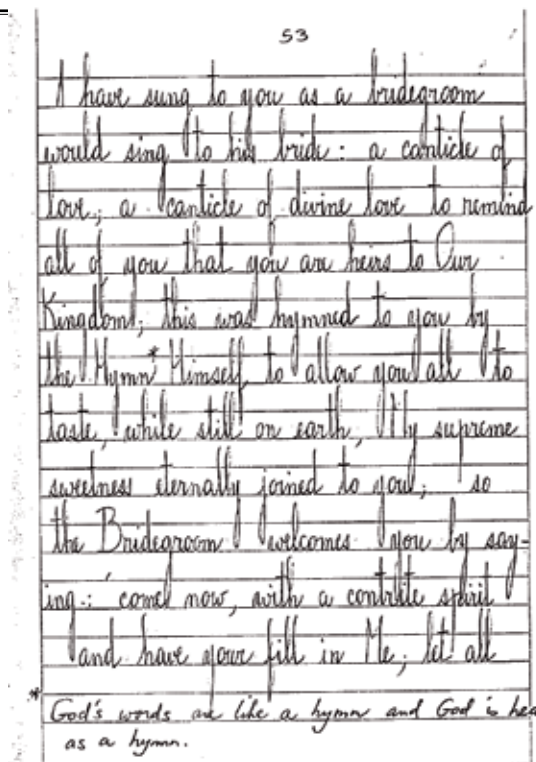 53
I have sung to you as a bridegroom
would sing to his bride : a canticle of
love; a canticle of divine love to remind
all of you that you are heirs to Our
Kingdom; this was hymned to you by
the Hymn* Himself, to allow you all to
taste, while still on earth, My supreme
sweetness eternally joined to you; so
the Bridegroom welcomes you by say-
ing : 'come now, with a contrite spirit
and have your fill in Me; let all
* God's words are like a hymn and God is hea
as a hymn.